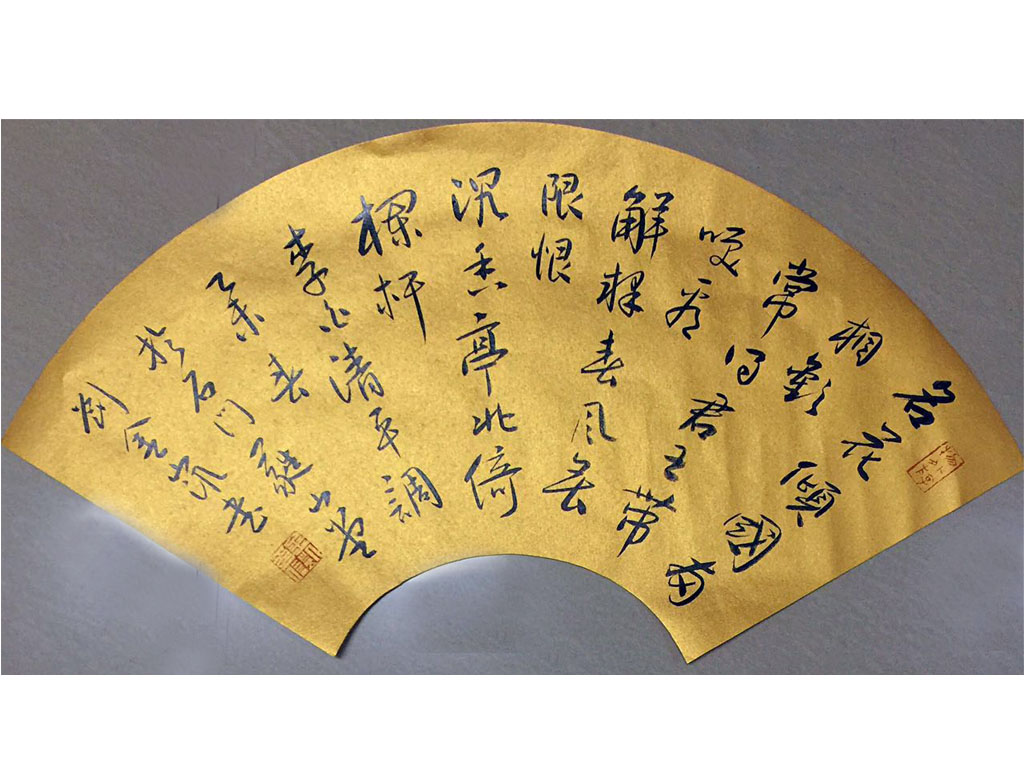 名花傾國兩
相歡
常得君王带
笑看
解釋春風無
限恨
沉香亭北倚
欄杆
李白清平調
乙未春
於石門山堂
劉金書